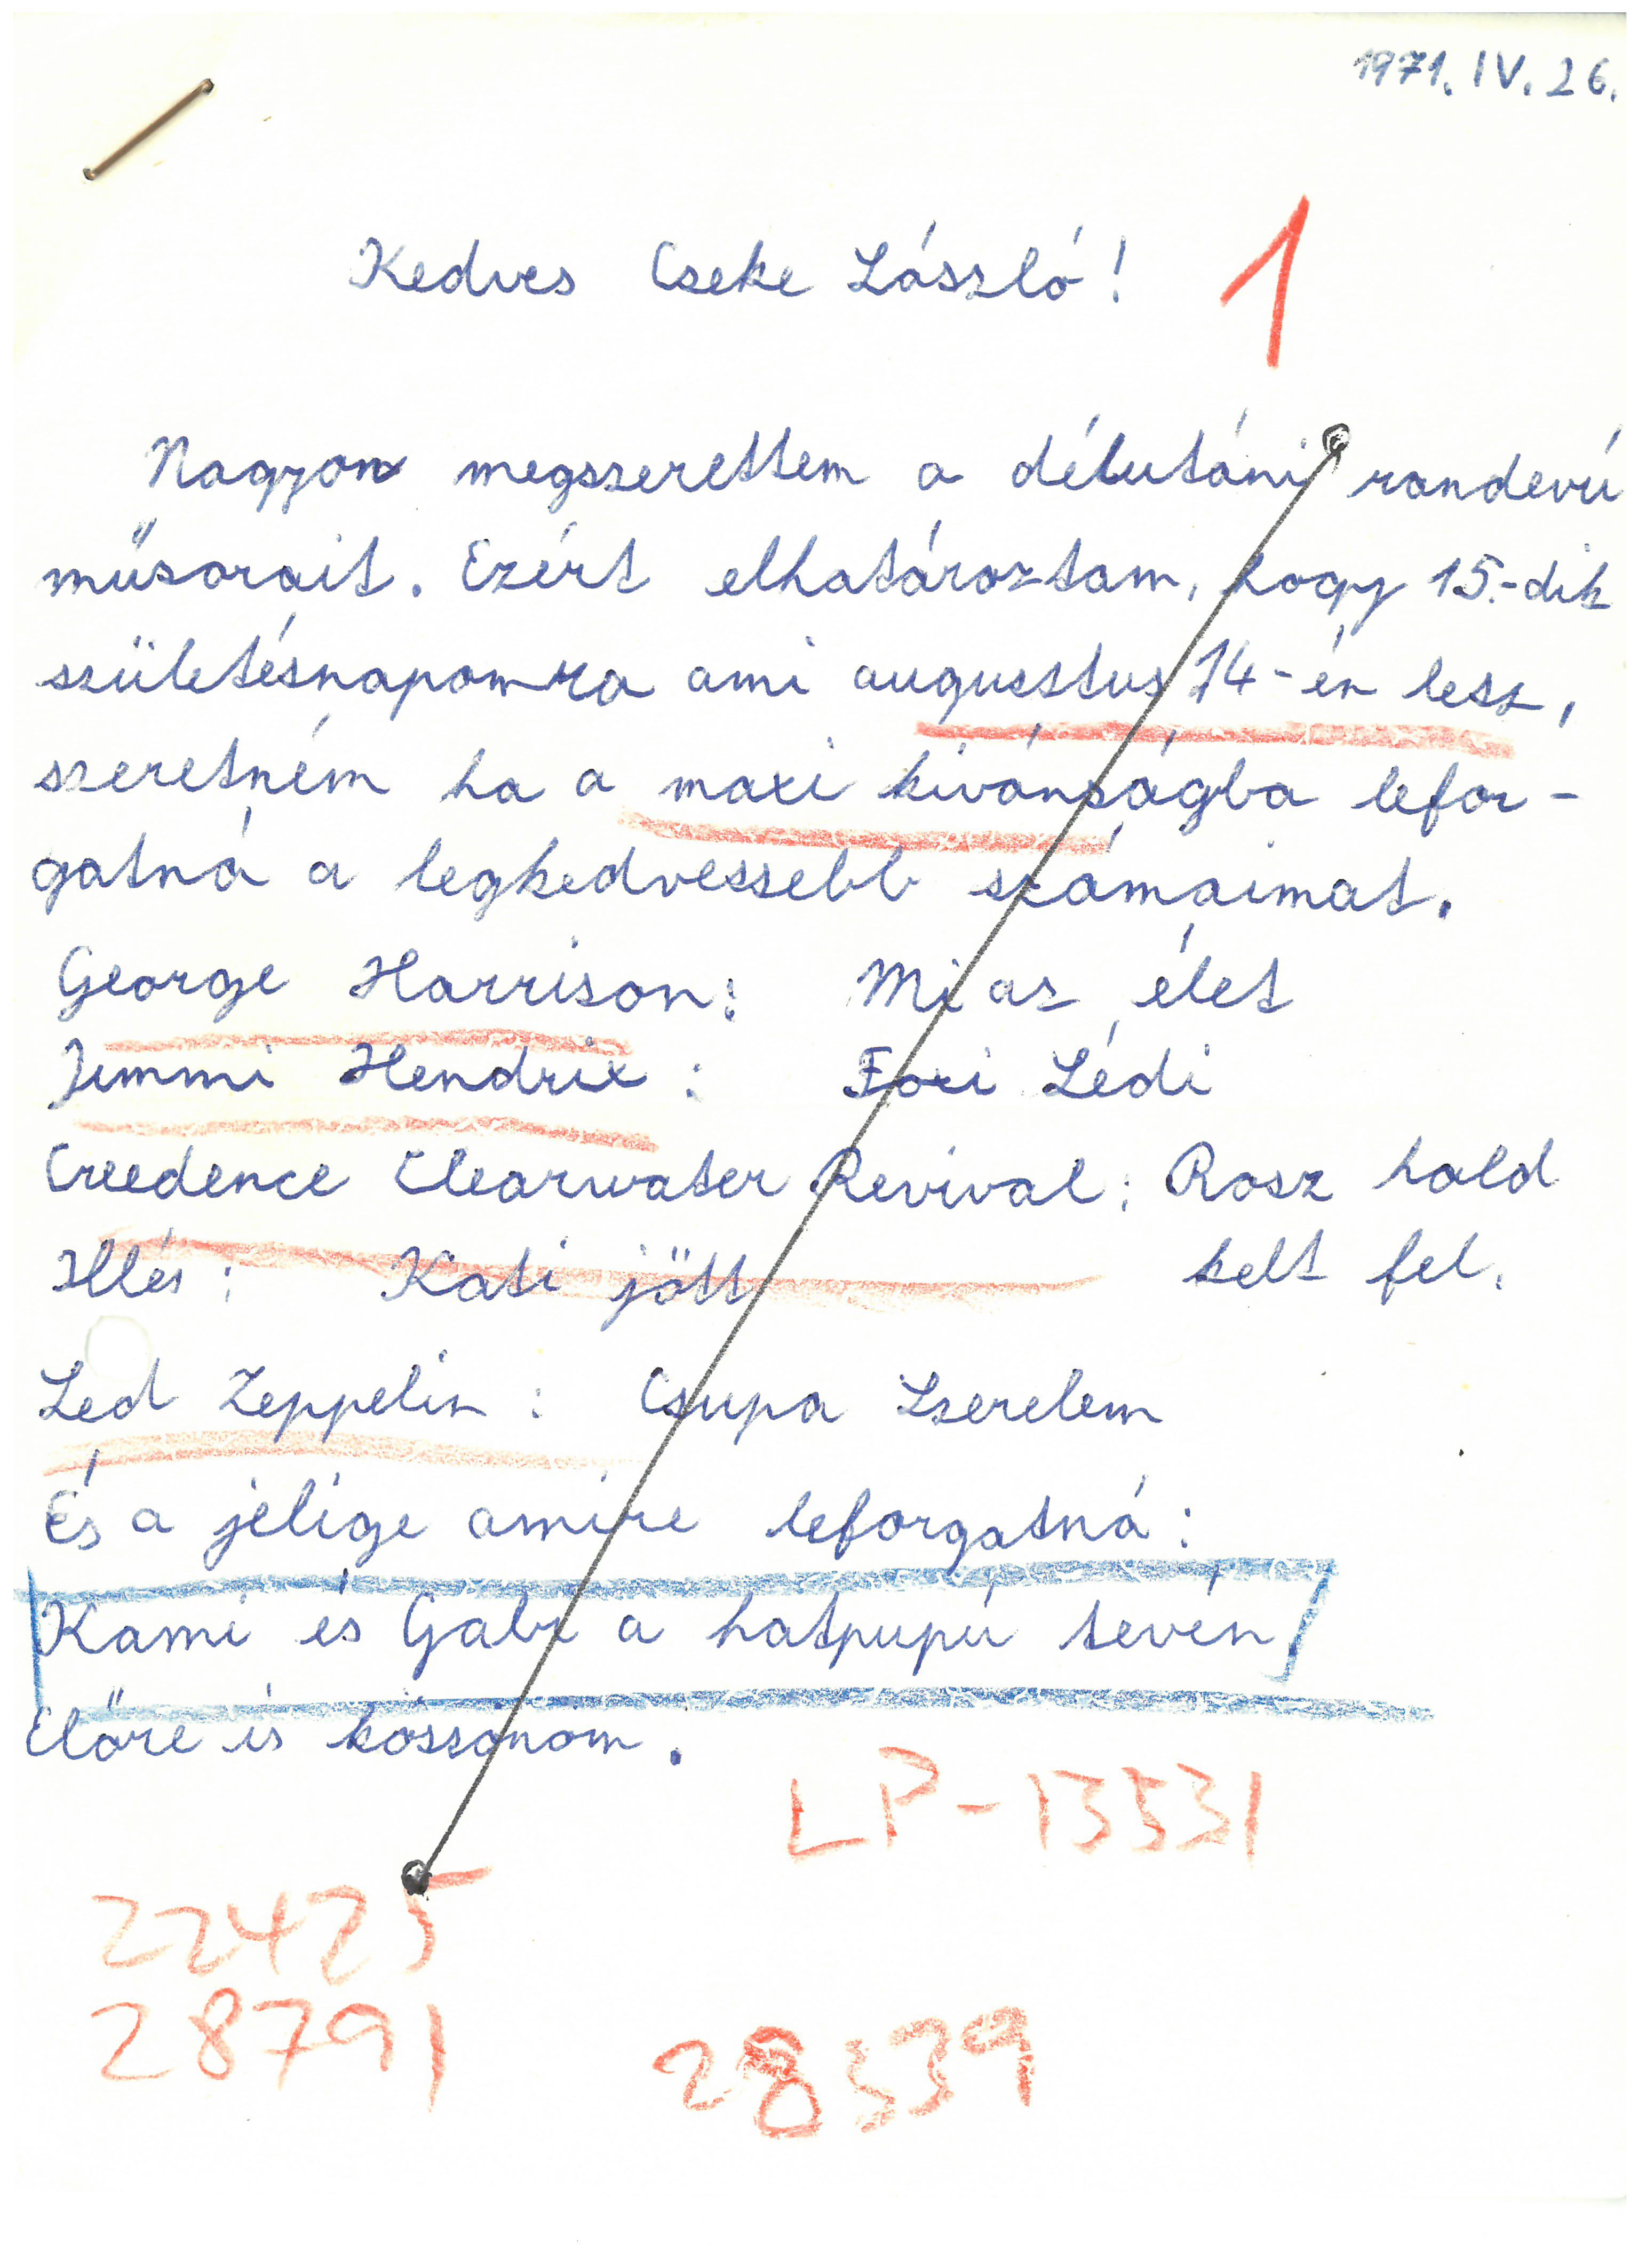 1971. IV. 26.
Kedves Cseke László! 1
Nagyon megszerettem a délutáni randevú
műsorait. Ezért elhatároztam, hogy 15.-dik
születésnapomra ami augusztus 14-én lesz,
szeretném ha a maxi kívánságba lefor-
gatná a legkedvessebb számaimat.
George Harrison: Mi az élet
Jimmi Hendrix: Foxi Lédi
Creedence Clearwater Revival: Rosz hold
Illés: Kati jött kelt fel.
Led Zeppelin: Csupa Szerelem
És a jelige amire leforgatná:
Kami és Gabi a hatpupú tevén!
Előre is kösszönöm.
LP-13531
22425
28791
28339